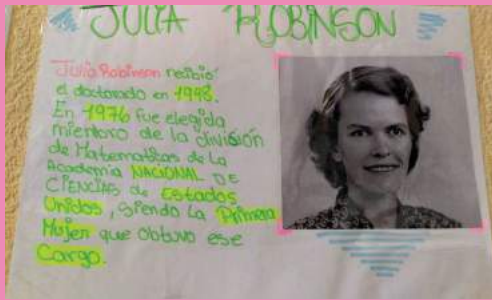 JULIA ROBINSON
Julia Robinson recibió
el doctorado en 1948.
En 1976 fue elegida
miembro de la división
de Matematicas de la
Academia NACIONAL DE
CIENCIAS de Estados
Unidos, siendo la Primera
Mujer que obtuvo ese
Cargo.